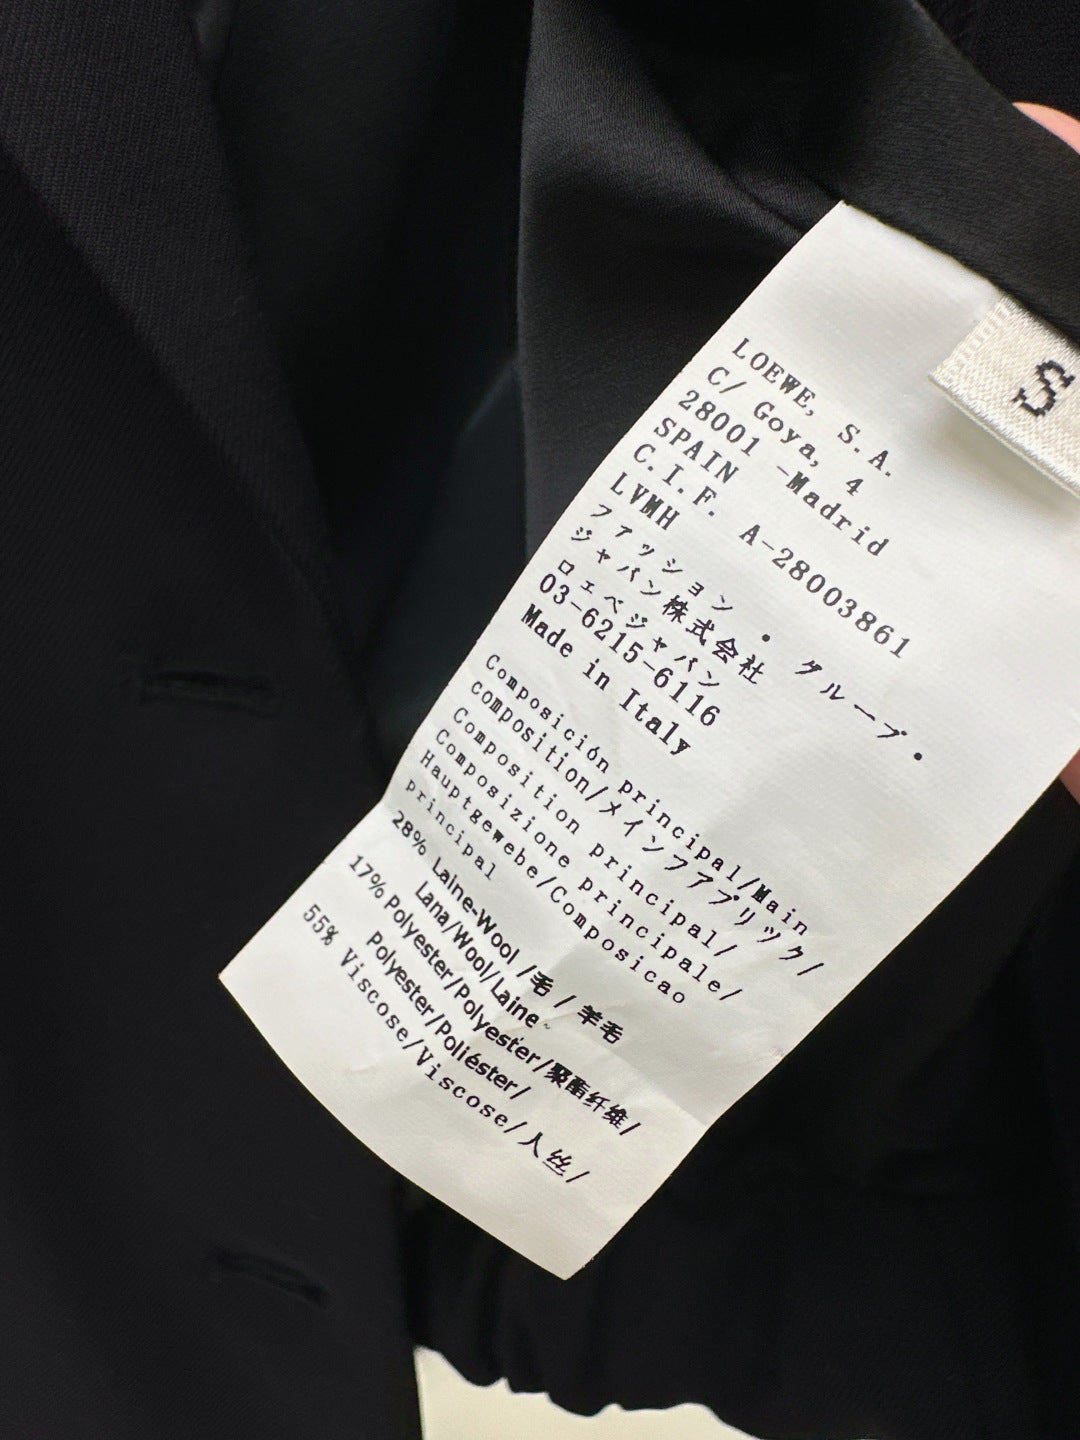 LOEWE, S.A.
C/ Goya, 4
28001 -Madrid
SPAIN
C.I.F. A-28003861
LVMH
ファッション・グループ・
ジャパン株式会社
ロエベジャパン
03-6215-6116
Made in Italy
Composición principal/Main
composition/メインファブリック/
Composition principal/
Composizione principale/
Hauptgewebe/Composicao
principal
28% Laine-Wool /毛 / 羊毛
Lana/Wool/Laine
17% Polyester/Polyester/聚酯纤维/
Polyester/Poliéster/
55% Viscose/Viscose/人丝/
S